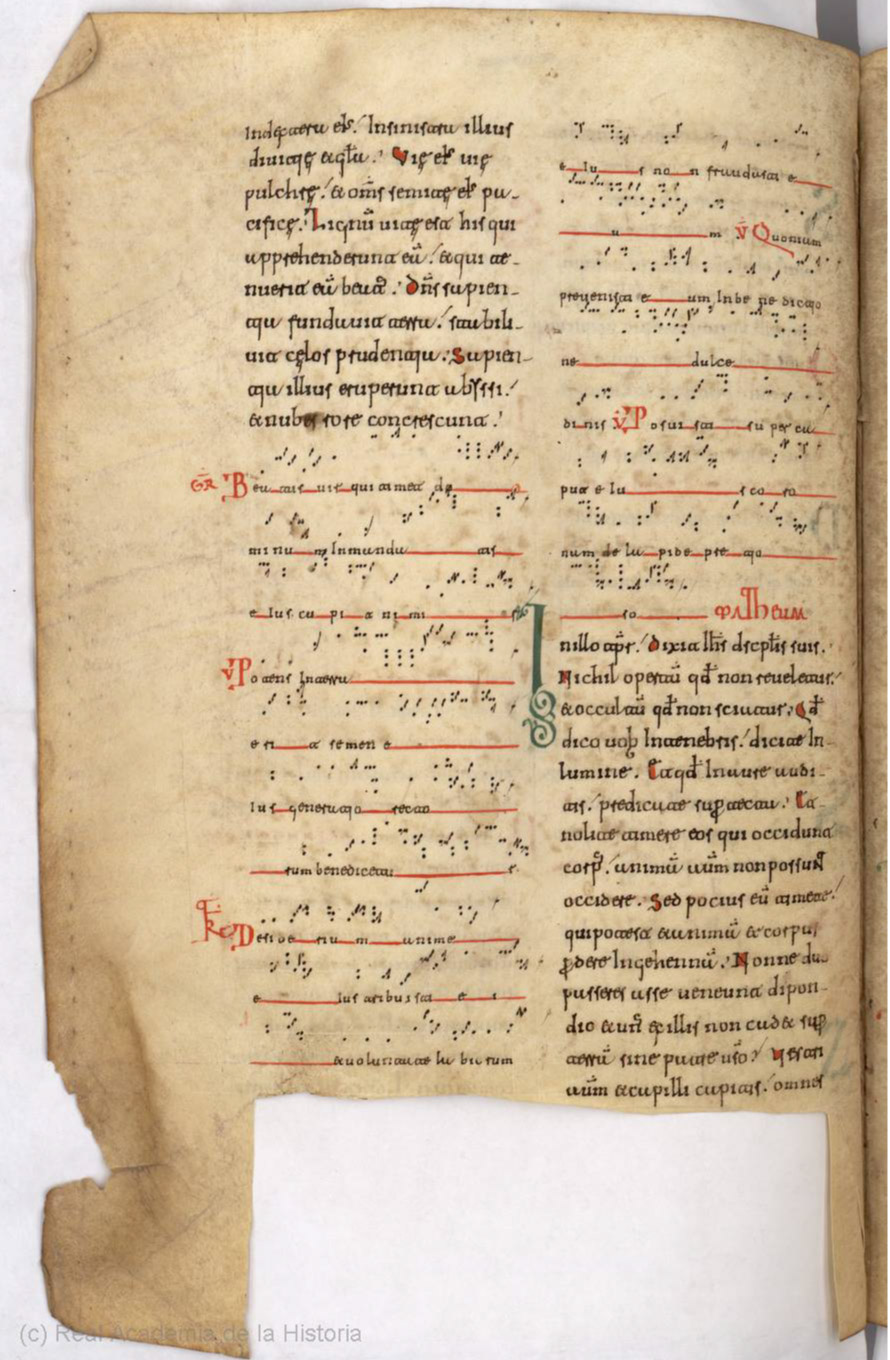 In dextera eius. In sinistra illius
diuitię & gła. Vię eis uię
pulchrę. & om̄s semitę eis pa-
cificę. Lignū uitę est his qui
apprehenderint eā. & qui te-
nuerit eā beat̄. Dn̄s sapien-
tia fundauit terrā. stabili-
uit cęlos prudentia. Sapien-
tia illius eruperunt abyssi.
& nubes rore concrescunt.
GR Beatus uir qui timet do
minum In mandatis
eius cupit nimis
V Potens In terra
erit semen e
ius generatio recto
rum benedicetur
Desiderium anime
eius tribuisti ei
& uoluntate labiorum
eius non fraudasti e
um V Quoniam
preuenisti eum In bene dictio
ne dulce
dinis V Posuisti super ca
put eius coro
nam de lapide precio
so MATHEUM
In illo tp̄r. Dixit ihs̄ discplīs suis.
Nichil opertū qđ non reueletur.
& occultū qđ non sciatur. Qđ
dico uob In tenebris. dicite In
lumine. Et qđ In aure audi-
tis. predicate sup tecta. Et
nolite timere eos qui occidunt
corp̄. animā aūm non possunt
occidere. Sed pocius eū timete.
qui potest & animā & corpus
pdere In gehennā. Nonne duo
passeres asse ueneunt dipon-
dio & un̄ ex illis non cad& sup
terrā sine patre ūro. Vestri
aūm & capilli capitis. omnes
(c) Real Academia de la Historia